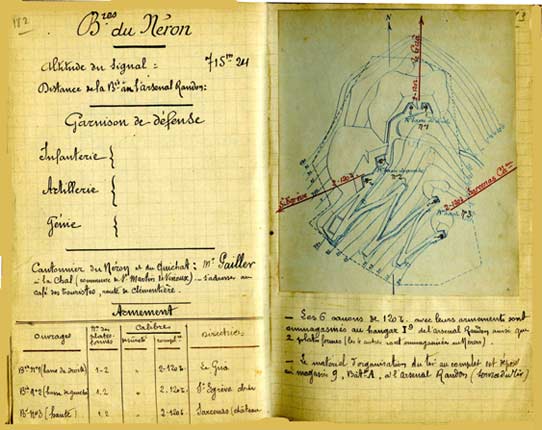 182
B.res du Néron
Altitude du Signal : 715m 24
Distance de la Bie à l'arsenal Randon :
Garnison de défense
Infanterie {
Artillerie {
Génie {
Cantonnier du Néron et du Guichat : Mr Pailler
à la Chal (commune de St Martin le Vinoux) - s'adresser au
café des touristes, route de Clémentière.
Armement
Ouvrages
Nos des plates-formes
Calibre
Directrices
sécurité
complt
Bie No1 (basse de droite) 1-2 " 2-120L Le Gua
Bie No2 (basse de gauche) 1-2 " 2-120L St Egrève
Bie No3 (haute) 1-2 " 2-120L Sarcenas (château)
3
N
Le Gua
2-120L
No 1
St Egrève 2-120L
No 2
2-120L Sarcenas Chau
No 3
- Les 6 canons de 120L avec leurs armements sont
emmagasinés au hangar I9 de l'arsenal Randon ainsi que
2 plates formes (les 4 autres sont emmagasinées au Néron).
- Le matériel d'organisation du tir au complet est déposé
au magasin 9, Batt. A, à l'arsenal Randon